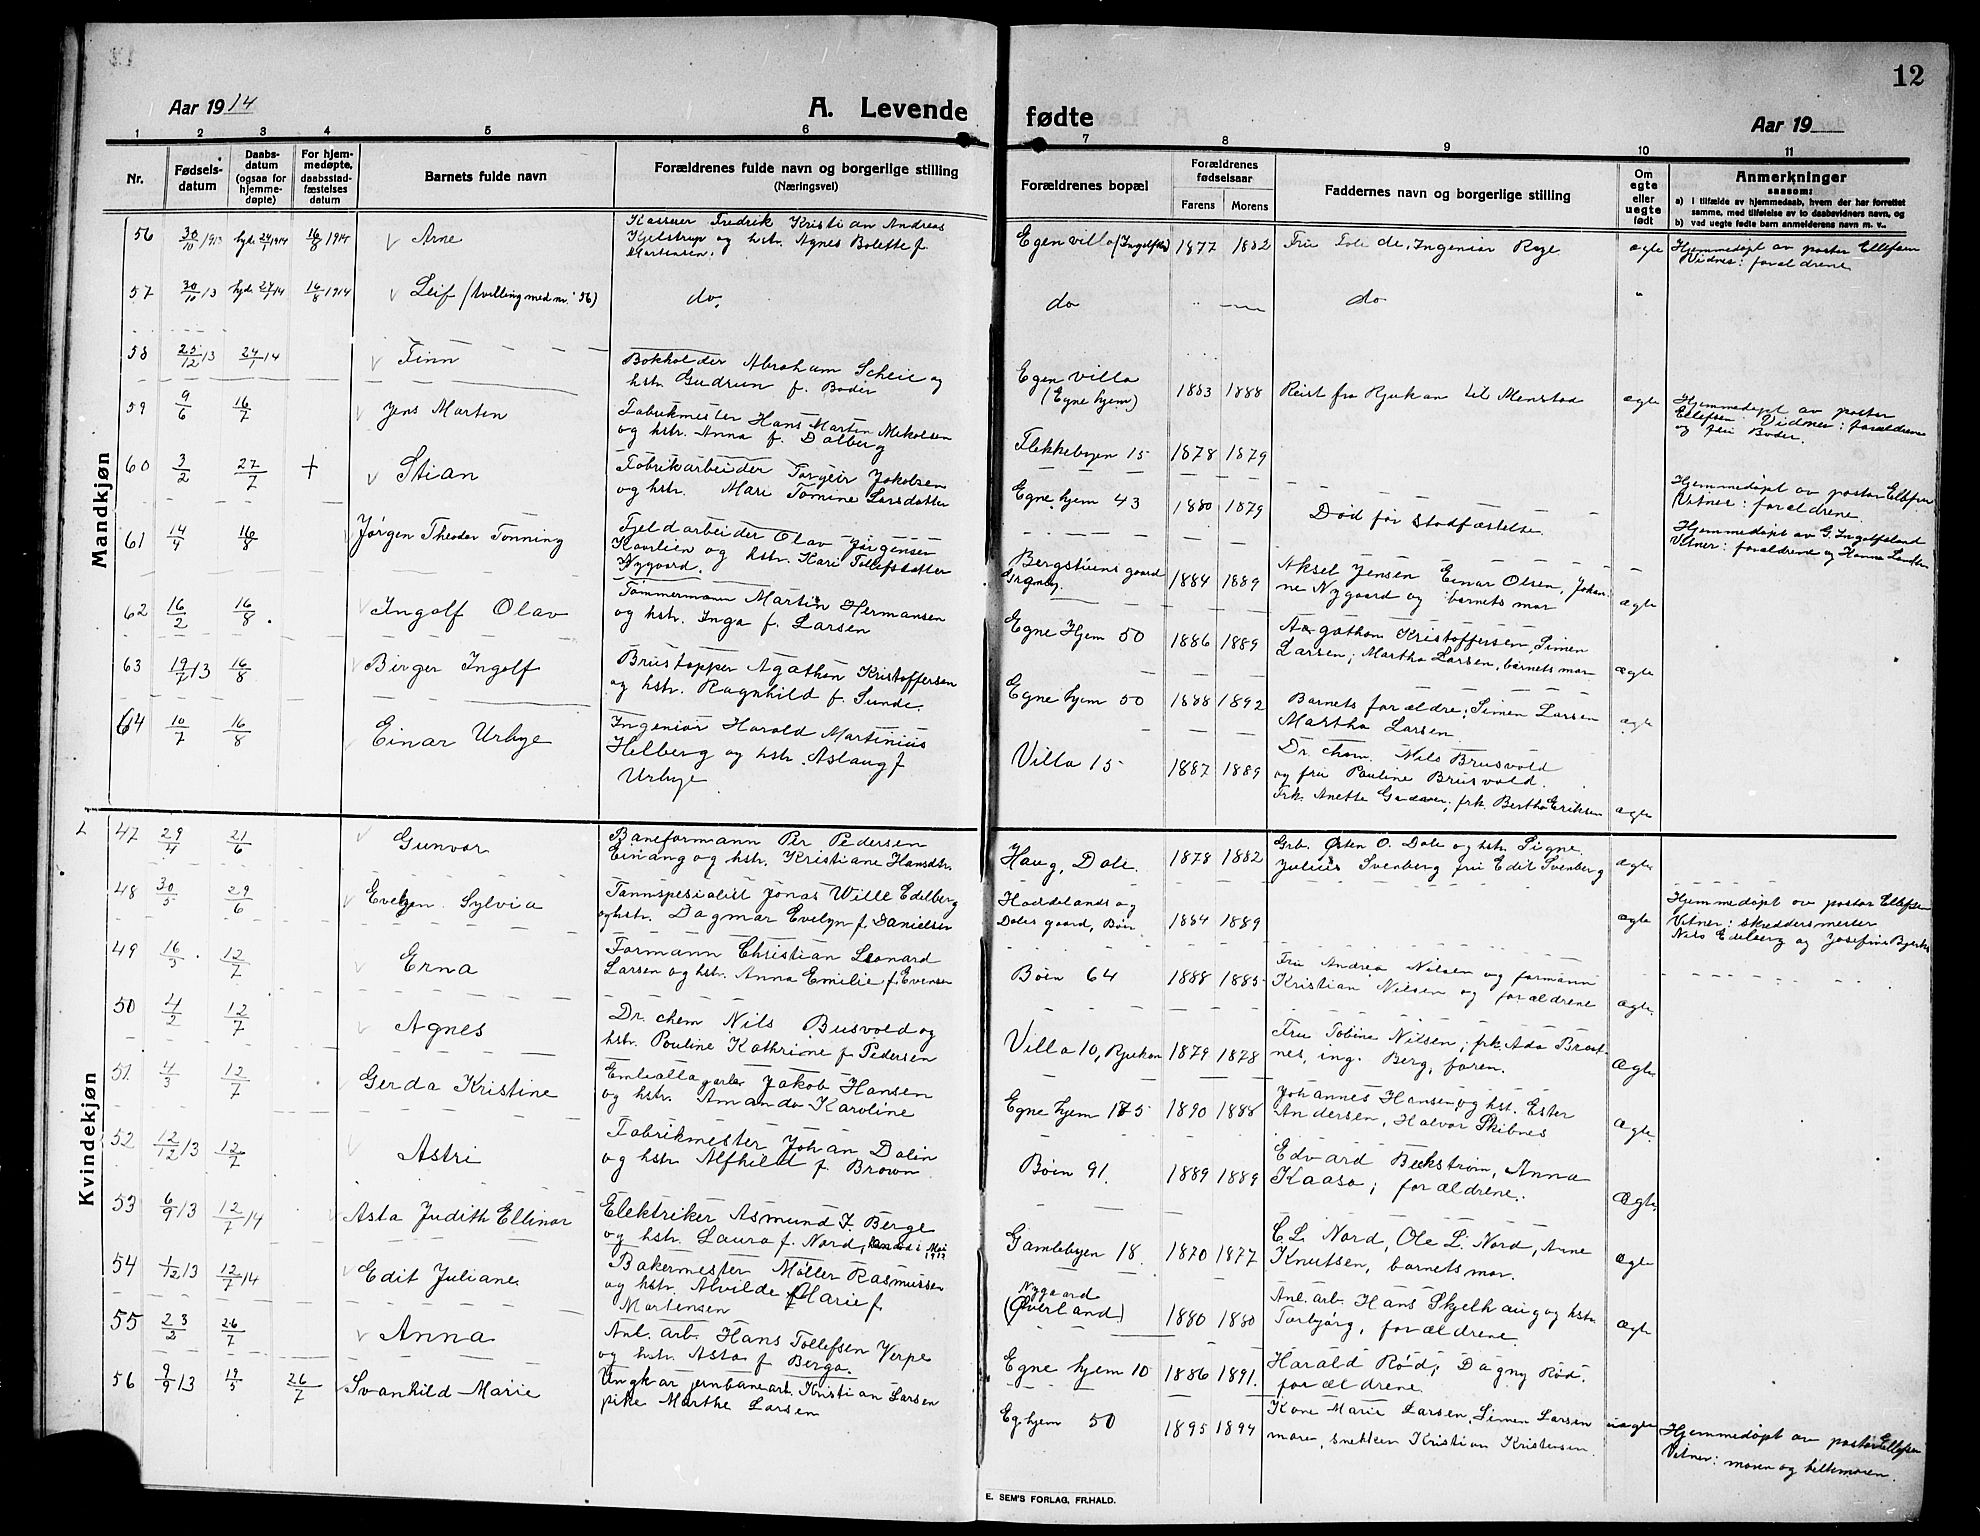 12
Aar 1914
A. Levende
fødte
Aar 19
1 2 3 4 5 6 7 8 9 10 11
Nr.
Fødsels-
datum
Daabs-
datum
(ogsaa for
hjemme-
døpte)
For hjem-
medøpte,
daabsstad-
fæstelses
datum
Barnets fulde navn
Forældrenes fulde navn og borgerlige stilling
(Næringsvei)
Forældrenes bopæl
Forældrenes
fødselsaar
Farens Morens
Faddernes navn og borgerlige stilling
Om
egte
eller
uegte
født
Anmerkninger
saasom:
a) i tilfælde av hjemmedaab, hvem der har forrettet
samme, med tilføielse av to daabsvidners navn, og
b) ved uegte fødte barn anmelderens navn m. v.
Mandkjøn
56 30/10 1913 hjd. 24/1 1914 16/8 1914 Arne
Kasserer Fredrik Kristian Andreas
Kjelstrup og hstr. Agnes Bolette f.
Martensen.
Egen villa 1877 1882 Fru Tolide, Ingeniør Roje ægte
Hjemmedøpt av pastor Ellefsen
Vidner: forældrene
57 30/10 13 hjd. 24/1 14 16/8 1914 Leif (tvilling med nr. 56) do. do do
58 25/12 13 24/1 14 Finn
Bokholder Abraham Scheie og
hstr. Gudrun f. Boder
Egen villa
(Egne hjem) 1883 1888 Reist fra Rjukan til Menstad ægte
Hjemmedøpt av pastor
Ellefsen. Vidner: forældrene
og fru Boder.
59 9/6 16/7 Jens Martin
Fabrikmester Hans Martin Mikolsen
og hstr. Anna f. Dalberg
Flekkebyen 15 1878 1879
60 3/2 27/7 + Stian
Fabrikarbeider Torgeir Jakobsen
og hstr. Mari Tomine Larsdatter
Egne hjem 43 1880 1879 Død før stadfæstelse
Hjemmedøpt av pastor Ellefsen
Vitner: forældrene.
61 14/4 16/8 Jørgen Theodor Tønning
Fjeldarbeider Olav Jørgensen
Kavlien og hstr. Kari Tollefsdatter
Nygaard.
Bergstiens gaard 1884 1889
Aksel Jensen Einar Olsen, Johan-
ne Nygaard og barnets mor ægte
Hjemmedøpt av G. Ingolfsland
Vitner: forældrene og Hanna Landsen
62 16/2 16/8 Ingolf Olav
Tømmermann Martin Hermansen
og hstr. Inga f. Larsen
Egne Hjem 50 1886 1889
Agathon Kristoffersen, Simen
Larsen; Martha Larsen, barnets mor ægte
63 19/7 13 16/8 Birger Ingolf
Brustopper Agathon Kristoffersen
og hstr. Ragnhild f. Sunde.
Egne hjem 50 1888 1892
Barnets forældre; Simen Larsen
Martha Larsen. ægte
64 10/7 16/8 Einar Urbye
Ingeniør Harald Martinius
Helberg og hstr. Aslaug f.
Urbye
Villa 15 1887 1889
Dr. chem. Nils Brusvold
og fru Pauline Brusvold.
Frk. Anette Gardaver, frk. Bertha Eriksen ægte
Kvindekjøn
47 29/4 21/6 Gunvor
Baneformann Per Pedersen
Einang og hstr. Kristiane Hansdtr.
Haug, Dale. 1878 1882
Grb. Østen O. Dale og hstr. Signe.
Julius Svenberg fru Edit Svenberg ægte
48 30/5 29/6 Evelyn Sylvia
Tannspesialist Jonas Wille Edelberg
og hstr. Dagmar Evelyn f. Danielsen
Haddelands og
Dales gaard, Bøen 1884 1889 ægte
Hjemmedøpt av pastor Ellefsen
Vitner: skreddermester
Nils Edelberg og Josefine Bjerke
49 16/3 12/7 Erna
Formann Christian Leonard
Larsen og hstr. Anna Emilie f. Evensen
Bøen 64 1888 1885
Fru Andrea Nilsen og formann
Kristian Nilsen og forældrene ægte
50 4/2 12/7 Agnes
Dr. chem Nils Busvold og
hstr. Pauline Kathrine f. Pedersen
Villa 10, Rjukan 1879 1878
Fru Tobine Nilsen; frk. Ada Braat-
nes, ing. Berg, faren. Ægte
51 4/3 12/7 Gerda Kristine
Emballagearb. Jakob Hansen
og hstr. Amanda Karoline
Egne hjem 175 1890 1888
Johannes Hansen og hst. Ester
Andersen, Halvor Skibnes Ægte
52 12/12 13 12/7 Astri
Fabrikmester Johan Dalin
og hstr. Alfhild f. Brown.
Bøen 91. 1889 1889
Edvard Beckstrøm, Anna
Kaasa; forældrene. Ægte
53 6/9 13 12/7 14 Asta Judith Ellinor
Elektriker Asmund J. Berge
og hstr. Laura f. Nord,
Gamlebyen 18. 1870 1877
C. L. Nord, Ole L. Nord, Anne
Knutsen, barnets mor. ægte
54 1/12 13 12/7 14 Edit Juliane
Bakermester Møller Rasmussen
og hstr. Alvilde Marie f.
Martensen
Nygaard
(Øverland) 1880 1880
Anl. arb. Hans Skjelhaug og hstr.
Torbjørg, forældrene. ægte
55 23/2 26/7 Anna
Anl. arb. Hans Tollefsen Verpe
og hstr. Asta f Berge.
Egne hjem 10 1886 1891.
Harald Rød; Dagny Rød.
forældrene.
56 9/9 13 19/5 26/7 Svanhild Marie
Ungkar jernbanearb. Kristian Larsen
pike Marthe Larsen
Eg. hjem 50 1895 1894
Kone Marie Larsen, Simen Larsen
moren, snekker Kristian Kristensen. uægte
Hjemmedøpt av pastor Ellefsen
Vitner: moren og
E. SEM'S FORLAG, FR.HALD.